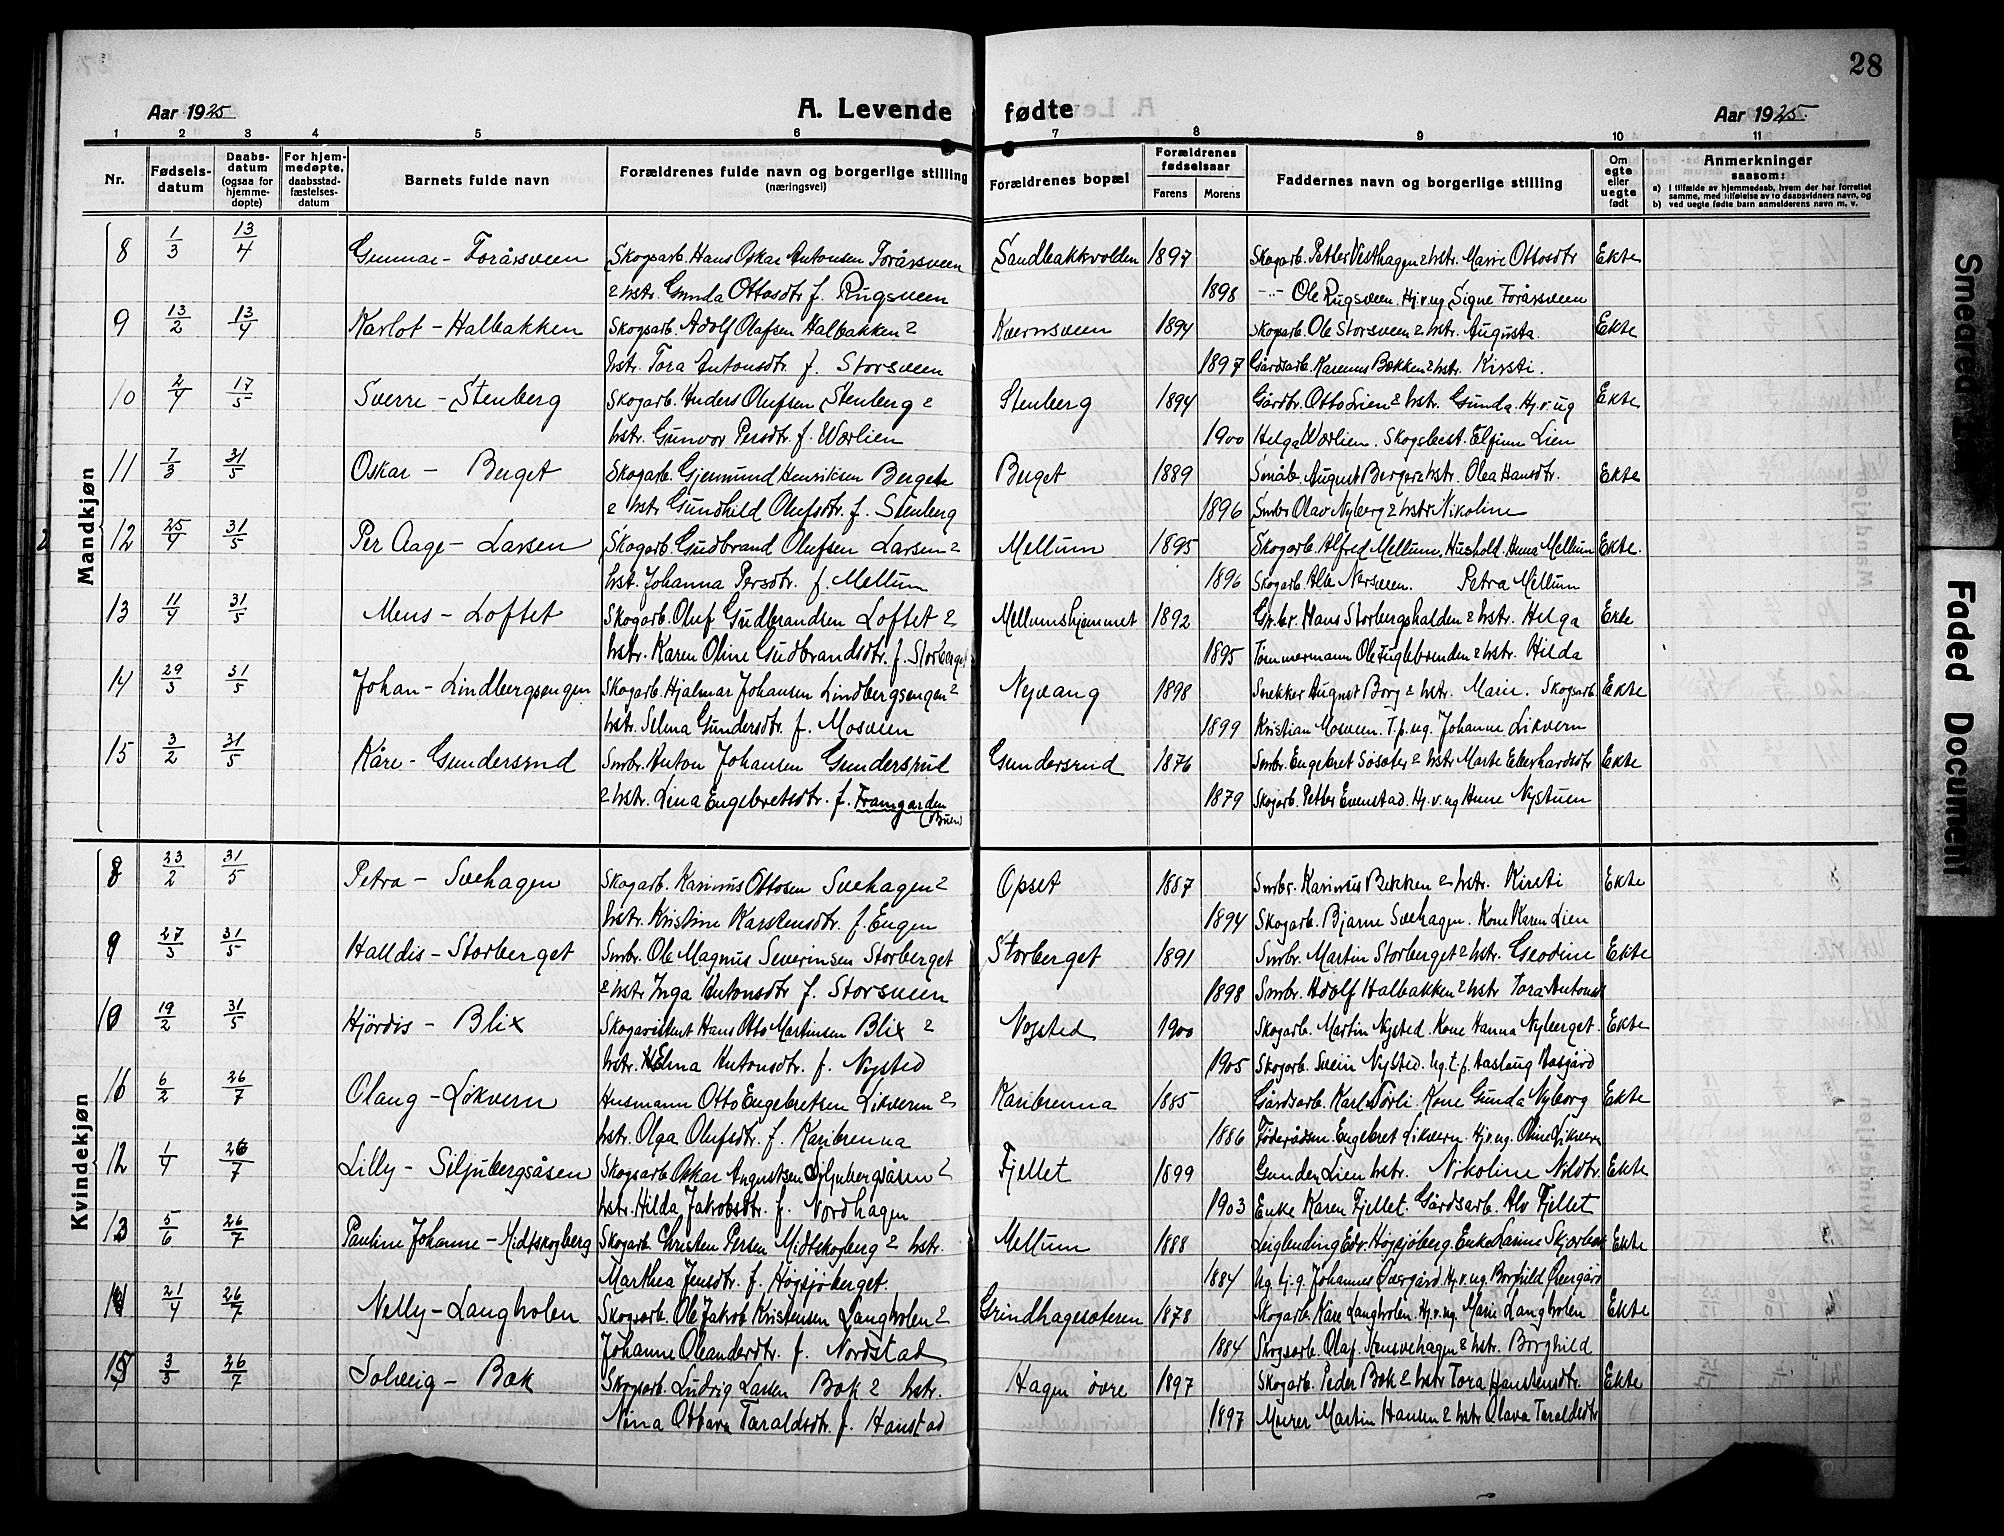 28
Aar 1925
A. Levende fødte
Aar 1925
1 2 3 4 5 6 7 8 9 10 11
Nr.
Fødsels-datum
Daabs-datum (ogsaa for hjemme-døpte)
For hjem-medøpte, daabsstad-fæstelses-datum
Barnets fulde navn
Forældrenes fulde navn og borgerlige stilling (næringsvei)
Forældrenes bopæl
Forældrenes fødselsaar
Farens Morens
Faddernes navn og borgerlige stilling
Om egte eller uegte født
Anmerkninger saasom:
a) I tilfælde av hjemmedaab, hvem der har forrettet samme, med tilføielse av to daabsvidners navn, og
b) ved uegte fødte barn anmelderens navn m. v.
Mandkjøn
8 1/3 13/4 Gunnar - Forårsveen Skogsarb. Hans Oskar Antonsen Forårsveen Sandbakkvolden 1897 Skogarb. Petter Vesthagen & hstr. Marie Ottosdtr Ekte
& hstr. Gunda Ottosdtr f. Rugsveen 1898 -"- Ole Rugsveen. Hj.v.ug Signe Forårsveen
9 13/2 13/4 Karlot - Halbakken Skogsarb. Adolf Olafsen Halbakken & Kvernsveen 1894 Skogarb. Ole Storsveen & hstr. Augusta. Ekte
hstr. Tora Antonsdtr f. Storsveen 1897 Gårdsarb. Karenus Bækken & hstr. Kirsti.
10 2/4 17/5 Sverre - Stenberg Skogarb. Anders Olufsen Stenberg & Stenberg 1894 Gårdbr. Otto Lien & hstr. Gunda. Hj.v.ug Ekte
hstr. Gunvor Persdtr. f. Wærlien 1900 Helga Wærlien. Skogsbest. Elfinn Lien
11 7/3 31/5 Oskar - Berget Skogarb. Gjermund Henriksen Berget Berget 1889 Småb. August Berger & hstr. Olea Hansdtr. Ekte
& hstr Gundhild Olufsdtr. f. Stenberg 1896 Smbr Olav Nyberg & hstr Nikoline
12 25/4 31/5 Per Aage - Larsen Skogarb. Gudbrand Olufsen Larsen & Mellum 1895 Skogarb. Alfred Mellum. Hushold. Anna Mellum Ekte.
hst. Johanna Persdtr. f. Mellum 1896 Skogarb. Nersveen. Petra Mellum
13 11/4 31/5 Mens - Loftet Skogarb. Oluf Gudbrandsen Loftet & Mellumshjemmet 1892 Gr.br. Hans Storbergshalden & hstr. Helga Ekte
hstr. Karen Oline Gudbrandsdtr. f. Storberget 1895 Tømmermann Ole Fuglebrenden & hstr. Hilda
14 29/3 31/5 Johan - Lindbergsengen Skogarb. Hjalmar Johansen Lindbergsengen & Nyvang 1898 Snekker August Borg & hstr. Marie. Skogsarb. Ekte
hstr. Selma Gundersdtr f. Mosveen 1899 Kristian Mosveen. T.p.ug. Johanne Likvern
15 3/2 31/5 Kåre - Gundersrud Smbr. Anton Johansen Gundersrud Gundersrud 1876 Smbr. Engebret Sosæter & hstr Marte Eberhardsdtr Ekte
& hstr. Lina Engebretsdtr. f. Framgarden 1879 Skogarb. Petter Evenstad. Hj.v.ug Anne Nystuen
Kvindekjøn
8 23/2 31/5 Petra - Svehagen Skogarb. Karinus Ottosen Svehagen & Opset 1887 Smbr. Karinus Bekken & hstr. Kirsti Ekte
hstr. Kristine Karstensdtr. f. Engen 1894 Skogarb. Bjarne Svehagen. Kone Karen Lien
9 27/3 31/5 Halldis - Storberget Smbr. Ole Magnus Severinsen Storberget Storberget 1891 Smbr. Martin Storberget & hstr. Geodine Ekte
& hstr Inga Antonsdtr f. Storsveen 1898 Smbr. Adolf Halbakken & hstr Tora Antonsdt
10 19/2 31/5 Hjördis - Blix Skogassistent Hans Otto Martinsen Blix & Nysted 1900 Skogarb. Martin Nysted. Kone Hanna Nyberget. Ekte
hstr. Elma Antonsdtr. f. Nysted 1905 Skogarb. Svein Nysted. ug.t.p. Aaslaug Aasgård
11 6/2 26/7 Olaug - Løkvern Husmann Otto Engebretsen Likvern & Karibrenna 1885 Gårdsarb. Karl Törli. Kone Gunda Nyborg Ekte
hstr. Olga Olufsdtr. f. Karibrenna 1886 Föderådsm. Engebret Likvern. Hj.v.ug. Oline Likvern
12 1/4 26/7 Lilly - Siljubergsåsen Skogsarb. Oskar Augustsen Siljubergsåsen & Fjellet 1899 Gunder Lien hstr. Nikoline Nilsdtr. Ekte
hstr. Hilda Jakobsdtr. f. Nordhagen 1903 Enke Karen Fjellet. Gårdsarb. Alv Fjellet
13 5/6 26/7 Pauline Johanne - Midtskogberg Skogarb. Christen Persen Midtskogberg & hstr. Mellum 1888 Leiglending Edv. Høgsjöberg. Enke Lanine Ekte
Marthea Jensdtr. f. Høgsjöberget. 1884 Ug.tj.g. Johannes Övergård. Hj.v.ug. Borghild Övergård
14 21/4 26/7 Nelly - Langholen Skogsarb. Ole Jakob Kristensen Langholen & Grindhagesæteren 1878 Skogsarb. Kåre Langholen. Hj.v.ug. Marie Langholen Ekte
Johanne Oleanderdtr. f. Nordstad 1884 Skogsarb. Olaf & hstr. Borghild
15 3/3 26/7 Solveig - Bæk Skogsarb. Ludvig Larsen Bæk & hstr. Hagen øvre 1897 Skogarb. Peder Bæk & hstr Tora Hanstensdtr. Ekte
Nina Ottava Taraldsdtr. f. Hanstad 1897 Murer Martin Hansen & hstr Olava Taraldsdtr
Faded Document